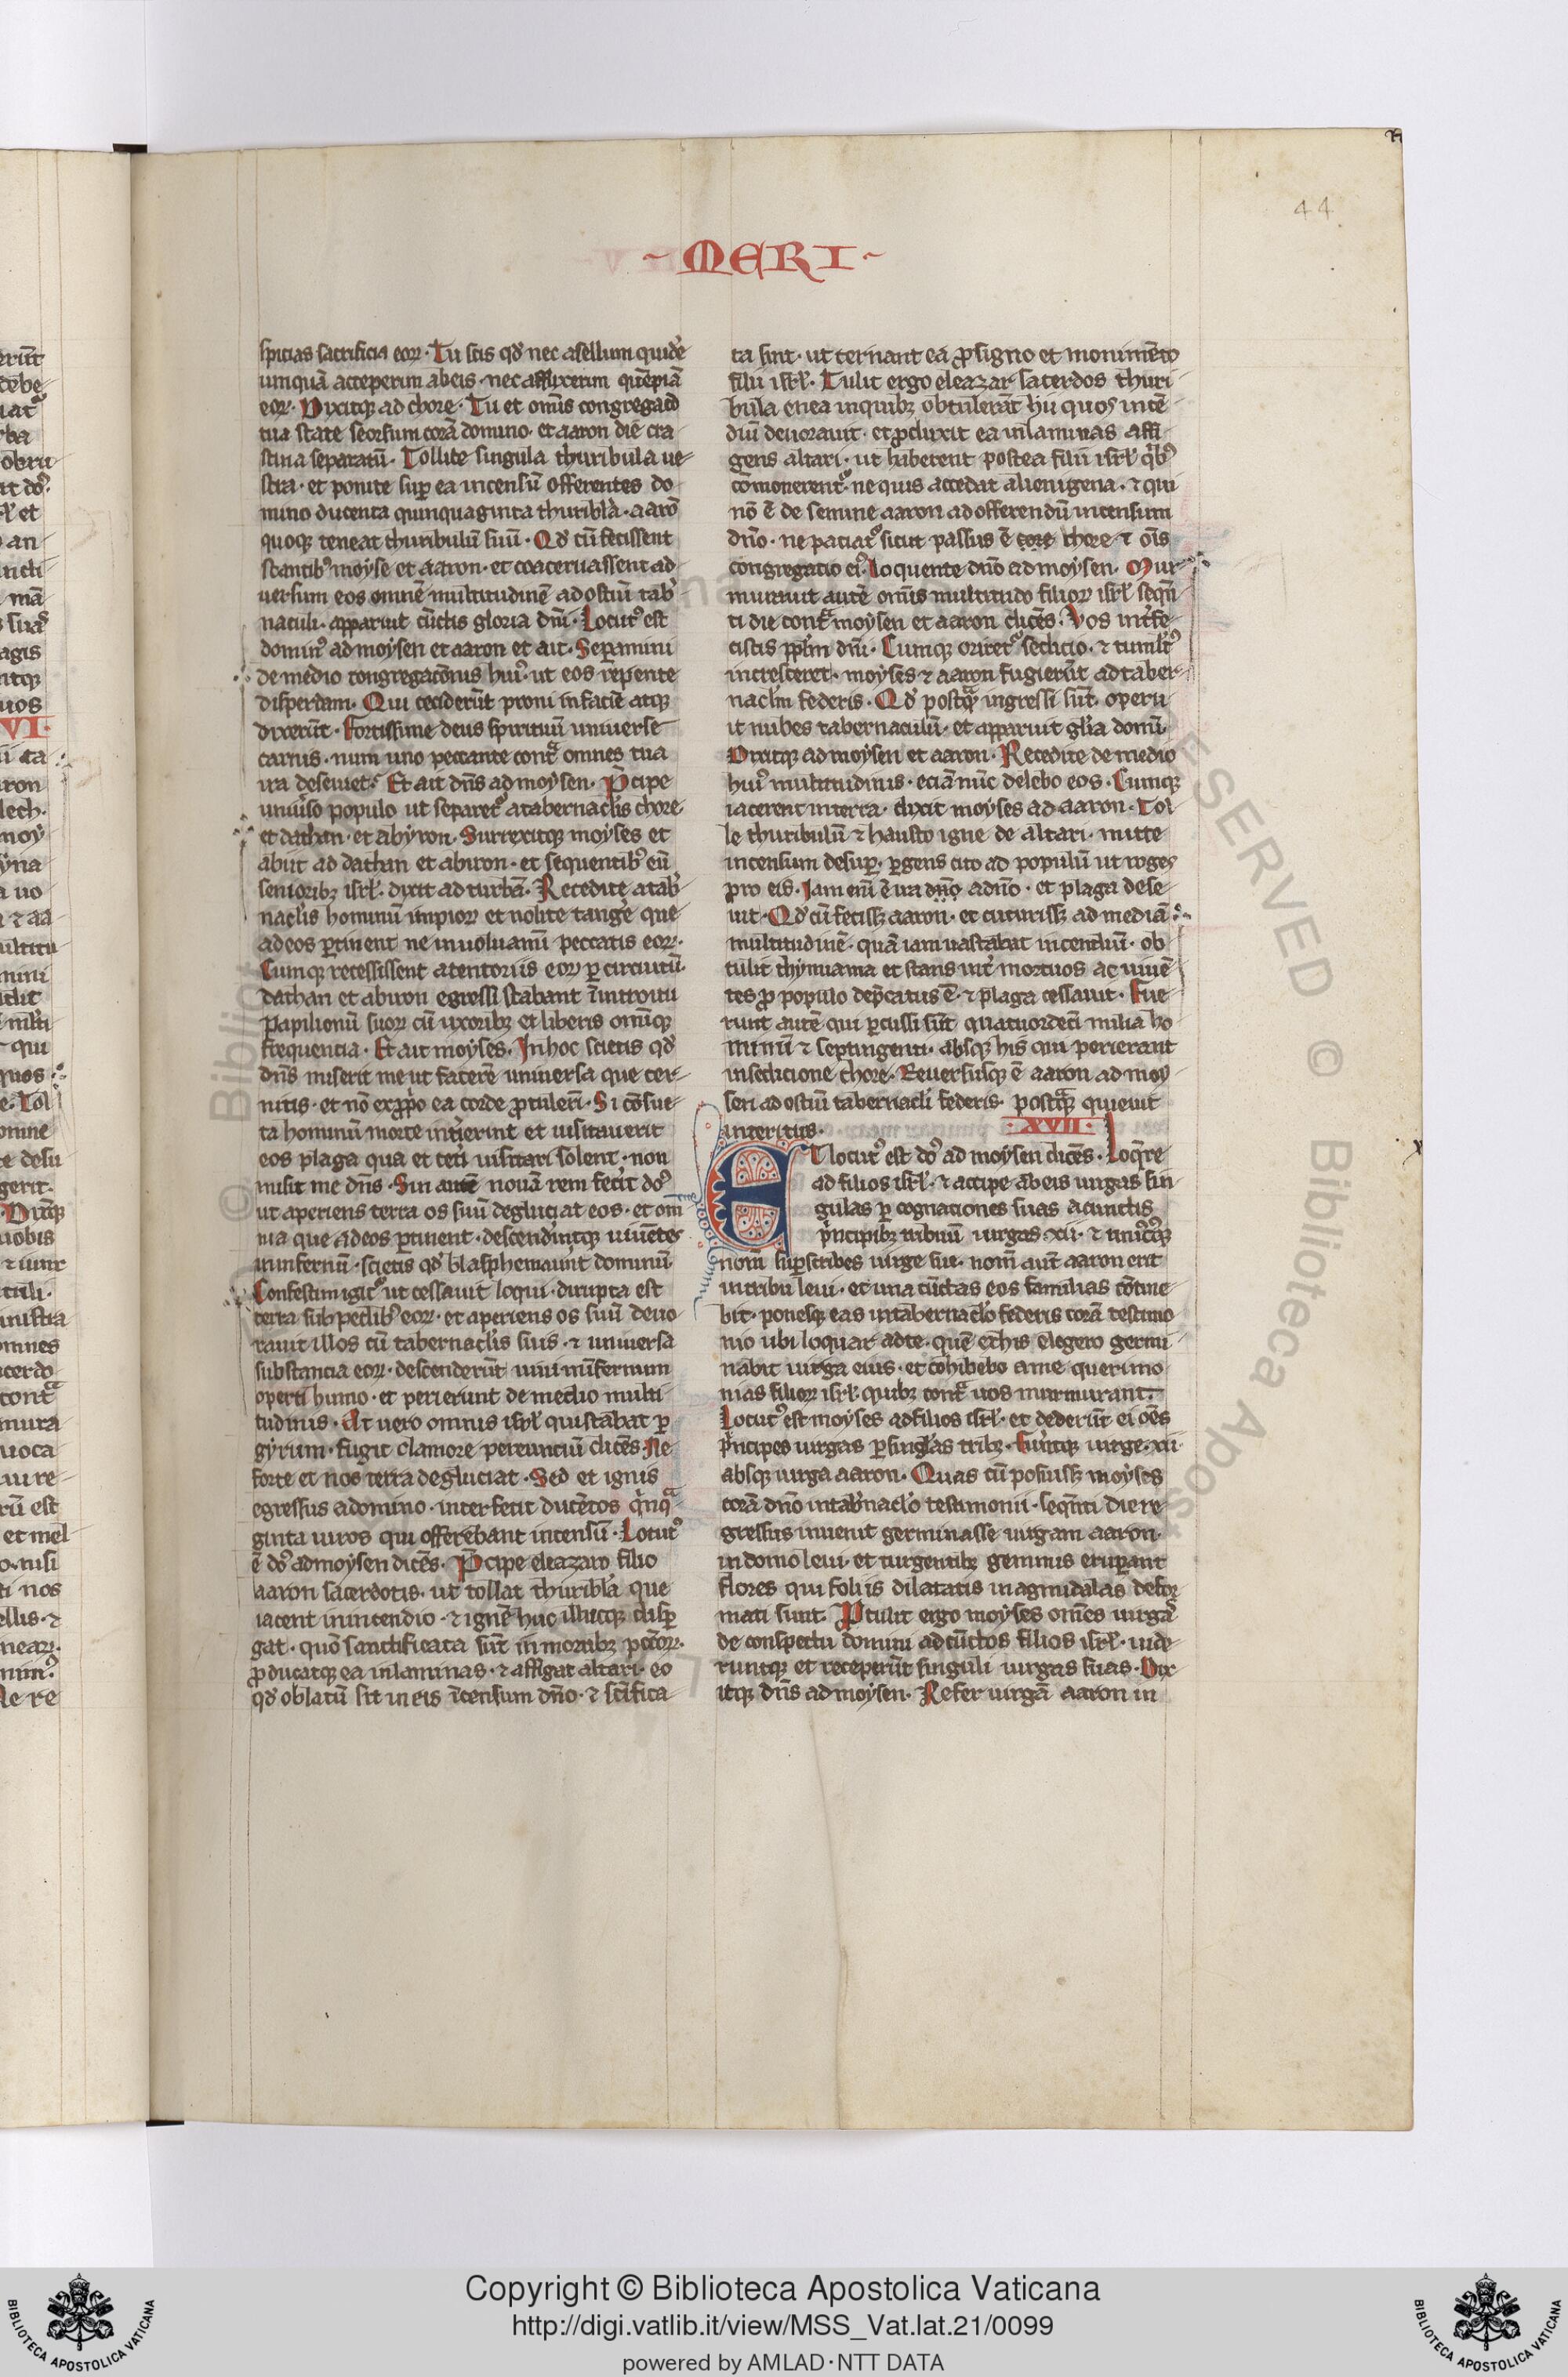 44
MERI
spicias sacrificia eoꝝ. Tu scis qd' nec asellum quidē
umquā acceperim ab eis. nec afflixerim quēpiā
eoꝝ. Dixitqꝫ ad chore. Tu et omīs congregacō
tua state seorsum corā domino. et aaron die cra-
stina separatū. Tollite singula thuribula ue-
stra. et ponite suꝑ ea incensū offerentes do-
mino ducenta quinquaginta thuribla. aarō
quoqꝫ teneat thuribulū suū. Qd' cū fecissent
stantibꝰ moyse et aaron. et coaceruassent ad-
uersum eos omnē multitudinē ad ostiū tab'
naculi. apparuit cūctis gloria dnī. Locutꝰ est
dominꝰ ad moysen et aaron et ait. Separamini
de medio congregacōnis huiꝰ. ut eos repente
disperdam. Qui ceciderūt proni in faciē atqꝫ
dixerūt. Fortissime deus spirituū uniuerse
carnis. num uno peccante contᵃ omnes tua
ira deseuiet. Et ait dn̄s ad moysen. P̄cipe
uniu'so populo ut separetᷣ a tabernacl'is chore
et dathan. et abyron. Surrexitqꝫ moyses et
abiit ad dathan et abiron. et sequentibꝰ eū
senioribꝫ isrl'. dixit ad turbā. Recedite a tab'
nacl'is hominū impioꝝ et nolite tange' que
ad eos ꝑtinent ne inuoluamī peccatis eoꝝ.
Cumqꝫ recessissent a tentoriis eoꝝ ꝑ circuitū.
dathan et abiron egressi stabant ī introitu
papilionū suoꝝ cū uxoribꝫ et liberis omīqꝫ
frequencia. Et ait moyses. In hoc scietis qd'
dn̄s miserit me ut facerē uniuersa que cer-
nitis. et nō ex ꝓp'o ea corde ꝓtulerī. Si cōsue-
ta hominū morte int'ierint et uisitauerit
eos plaga qua et cet'i uisitari solent. non
misit me dn̄s. Sin autē nouā rem fecit do'
ut aperiens terra os suū degluciat eos. et om̄
nia que ad eos ꝑtinent. descend'intqꝫ uiuētes
in infernū. scietis qd' blasphemau'int dominū.
Confestim igitᷣ ut cessauit loqui. dirupta est
terra sub pedibꝰ eoꝝ. et aperiens os suū deuo-
rauit illos cū tabernacl'is suis. ⁊ uniuersa
substancia eoꝝ. descenderūt uiui in īfernum
operti humo. et perierunt de medio multi
tudinis. At uero omnis isrl' qui stabat ꝑ
gyrum. fugit clamore pereunciū dicēs. Ne
forte et nos terra degluciat. Sed et ignis
egressus a domino. interfecit ducētos q'nqᵃ-
ginta uiros qui offerebant incensū. Locutꝰ
ē do' ad moysen dicēs. P̄cipe eleazaro filio
aaron sacerdotis. ut tollat thuribl'a que
iacent in incendio. ⁊ ignē huc illucqꝫ disꝑ
gat. quō sanctificata sūt in mortibꝫ pctōꝝ.
ꝓducatqꝫ ea in laminas. ⁊ affigat altari. eo
qd' oblatū sit in eis īcensum dn̄o. ⁊ scīfica-
ta sint. ut cernant ea ꝓ signo et monimēto
filii isrl'. Tulit ergo eleazar sacerdos thuri-
bula enea in quibꝫ obtulerāt hii quos incē-
diū deuorauit. et ꝓduxit ea in laminas affi-
gens altari. ut haberent postea filii isrl' q'bꝰ
cōmonerentᷣ. ne quis accedat alienigena. ⁊ qui
nō ē de semine aaron ad offerendū incensum
dn̄o. ne paciatᷣ sicut passus ē core chore ⁊ oīs
congregatio eiꝰ. loquente dn̄o ad moysen. Mur-
murauit autē omīs multitudo filioꝝ isrl' seqn̄-
ti die contᵃ moysen et aaron dicēs. Vos int'fe-
cistis ppl'm dnī. Cumqꝫ oriretᷣ sedicio. ⁊ tumltꝰ
incresceret. moyses ⁊ aaron fugierūt ad taber-
nacl'm federis. Qd' postqᵃ ingressi sūt. operu
it nubes tabernaculū. et apparuit gl'ia domī.
Dixitqꝫ ad moysen et aaron. Recedite de medio
huiꝰ multitudinis. eciā nūc delebo eos. Cumqꝫ
iacerent in terra. dixit moyses ad aaron. Tol
le thuribulū ⁊ hausto igne de altari. mitte
incensum desuꝑ. ꝑgens cito ad populū ut roges
pro eis. Iam enī ē ira dn̄o a dn̄o. et plaga dese-
uit. Qd' cū fecissꝫ aaron. et cucurissꝫ ad mediā
multitudinē. quā iam uastabat incendiū. ob
tulit thymiama et stans int' mortuos ac uiuē-
tes ꝓ populo dep̄catus ē. ⁊ plaga cessauit. Fue-
runt autē qui ꝑcussi sūt quatuordeci milia ho
minū ⁊ septingenti. absqꝫ his qui perierant
in sedicione chore. Reuersusqꝫ ē aaron ad moy
sen ad ostiū tabernacl'i federis. postqᵃ quieuit
interitus. XVII.
ET locutꝰ est do' ad moysen dicēs. Loq're
ad filios isrl'. ⁊ accipe ab eis uirgas sin-
gulas ꝑ cognaciones suas a cunctis
p'ncipibꝫ tribuū uirgas. xii. ⁊ unicuiqꝫ
nom̄ suꝑscribes uirge sue. nom̄ aut̄ aaron erit
in tribu leui. et una cūctas eos familias cōtine-
bit. ponesqꝫ eas in tabernacl'o federis corā testimo
nio ubi loquar ad te. quē ex his elegero germi-
nabit uirga eius. et cohibebo a me querimo
nias filioꝝ isrl'. quibꝫ contᵃ uos murmurant.
Locutꝰ est moyses ad filios isrl'. et dederūt ei oēs
p'ncipes uirgas ꝑ singl'as tribꝫ. fu'intqꝫ uirge. xii.
absqꝫ uirga aaron. Quas cū posuissꝫ moyses
corā dn̄o in tab'nacl'o testimonii. seqn̄ti die re-
gressus inuenit germinasse uirgam aaron.
in domo leui. et turgentibꝫ gemmis eruperant
flores qui foliis dilatatis in agmidalas defor
mati sunt. P'tulit ergo moyses omēs uirgas
de conspectu domini ad cūctos filios isrl'. uide-
runtqꝫ et receperūt singuli uirgas suas. Dix-
itqꝫ dn̄s ad moysen. Refer uirgā aaron in
Copyright © Biblioteca Apostolica Vaticana
http://digi.vatlib.it/view/MSS_Vat.lat.21/0099
powered by AMLAD·NTT DATA